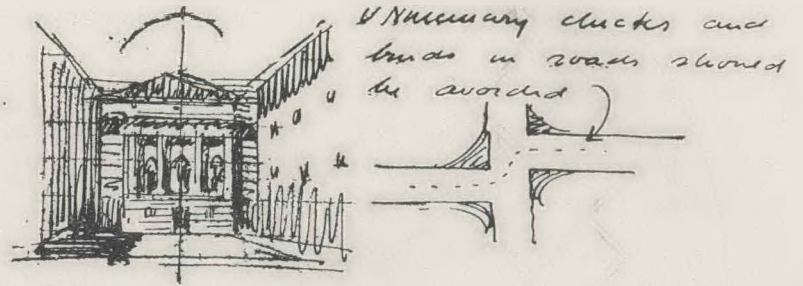 Unnecessary chicks and
bends in roads should
be avoided